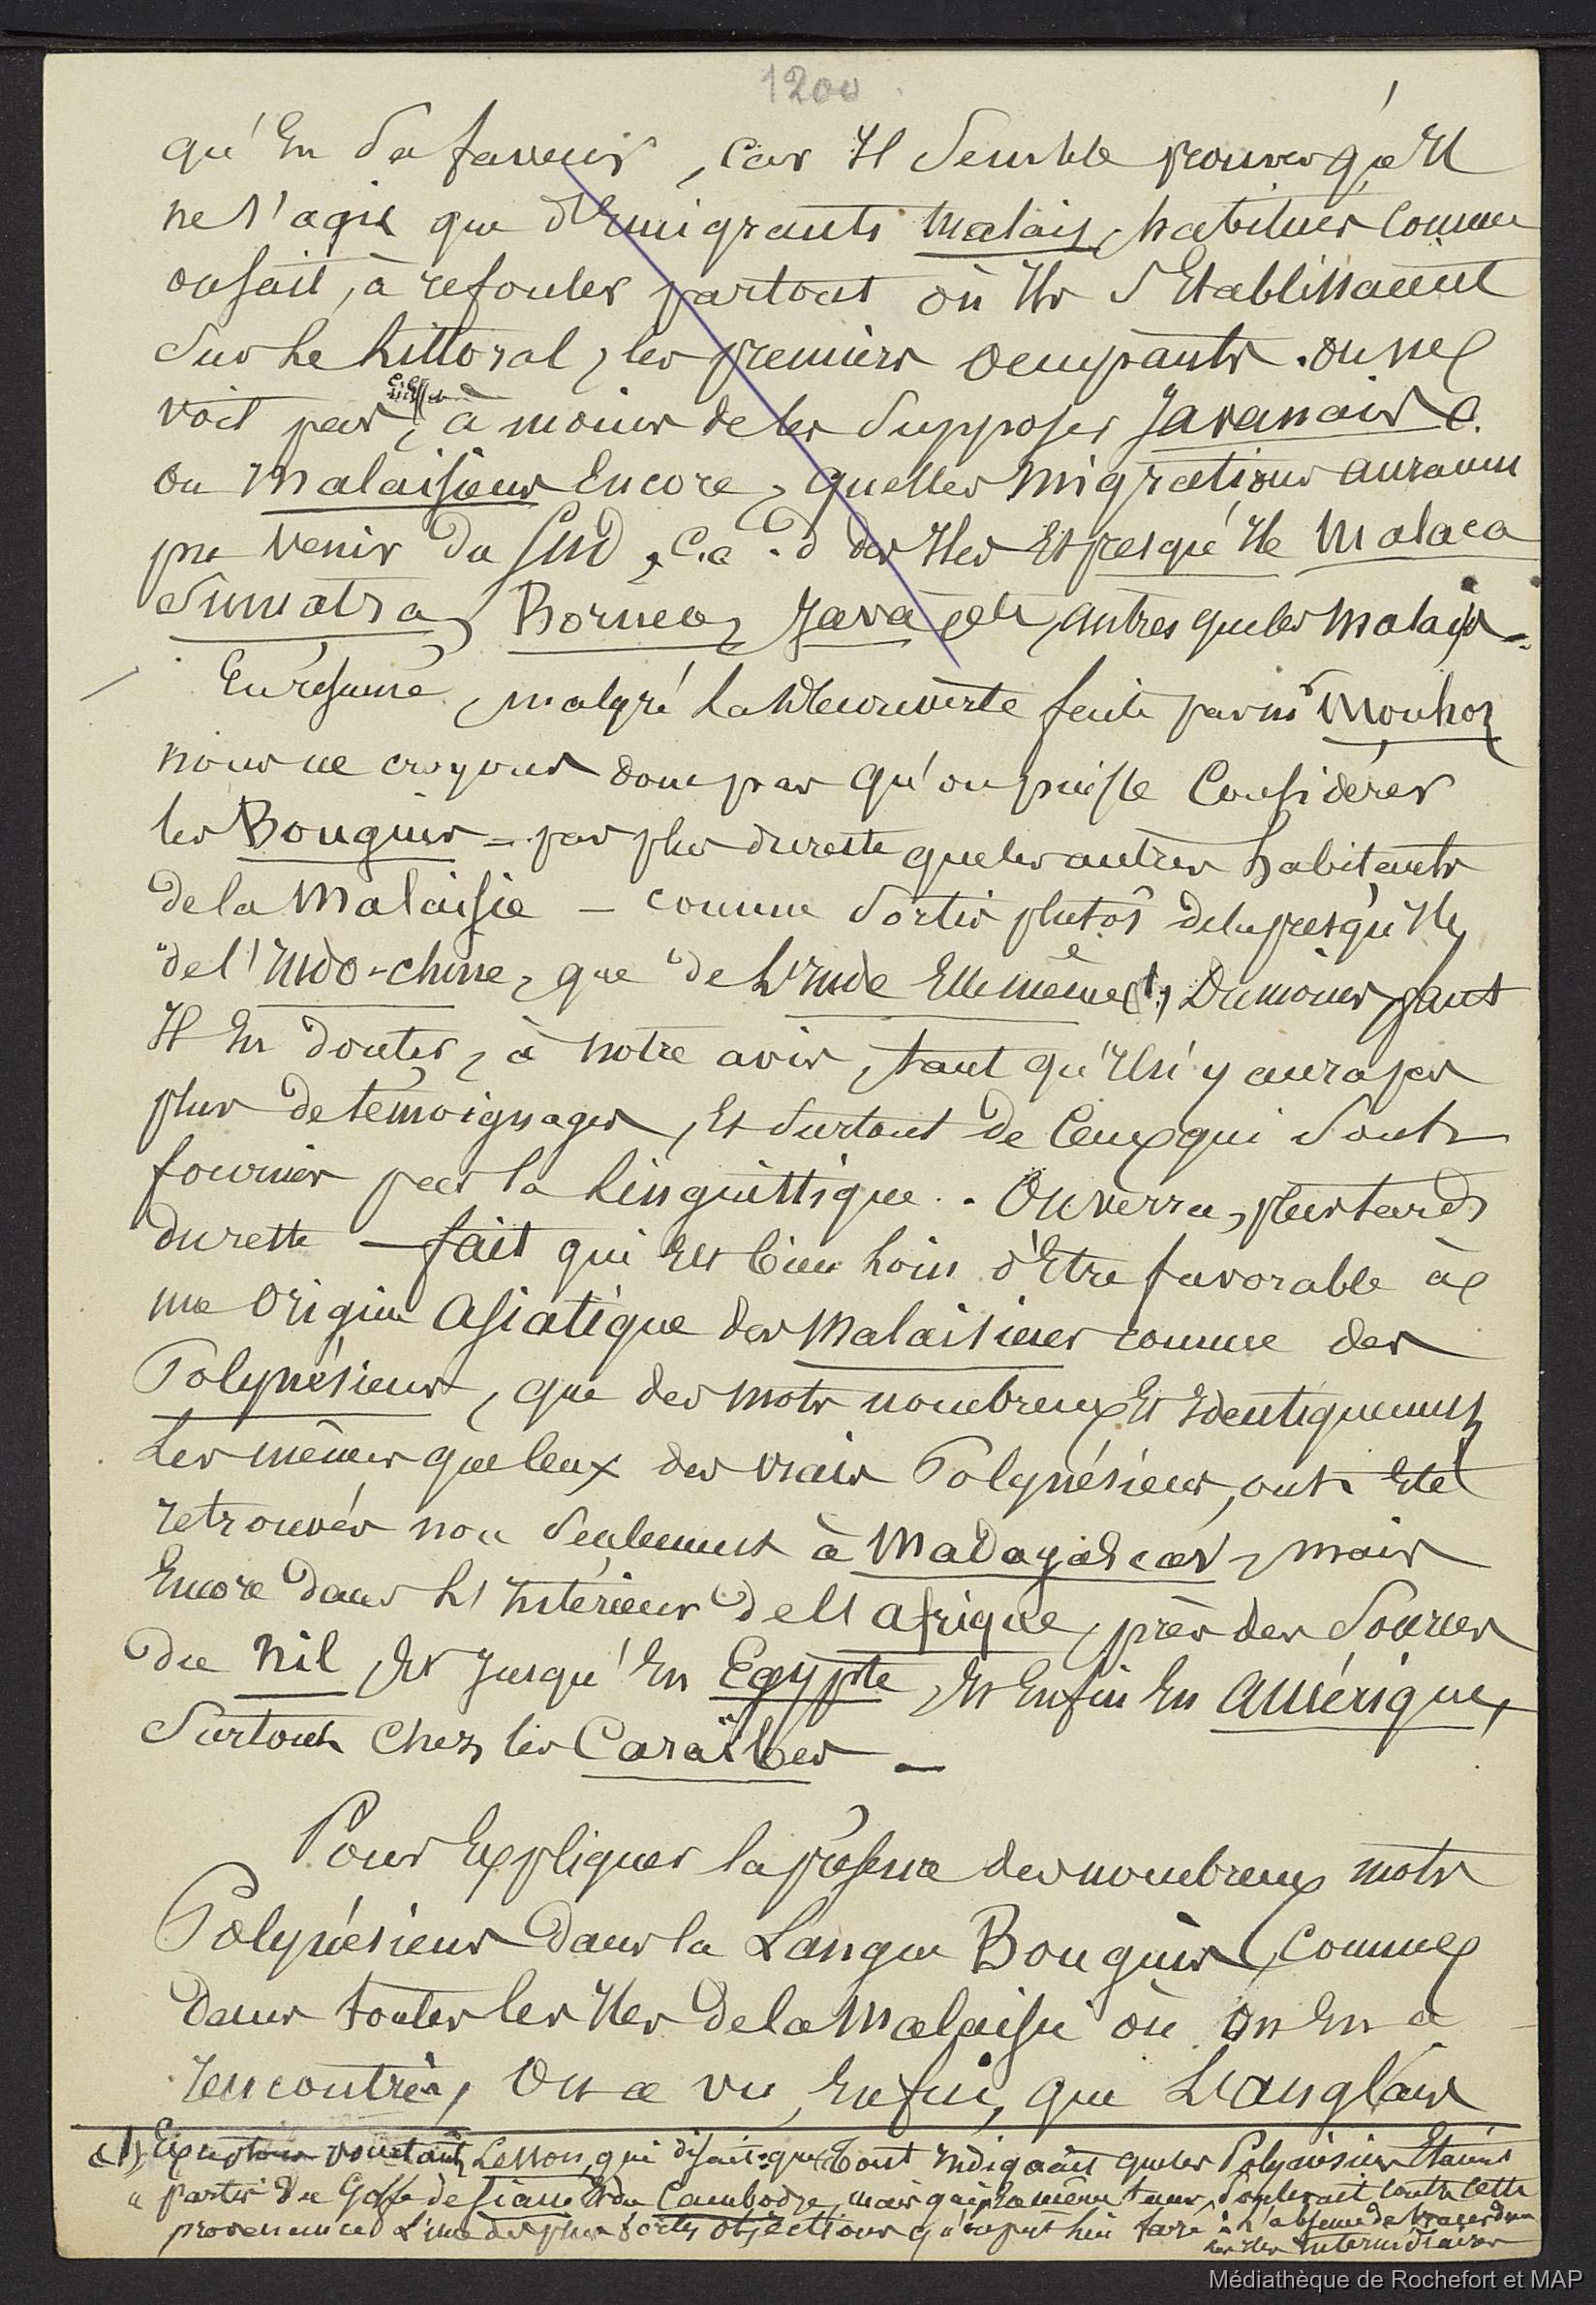 1200
qu'En sa faveur, car Il semble prouver qu'Il
ne s'agit que d'Emigrants Malais, habitués comme
on sait, à refouler partout où Ils s'Etablissaient
sur Le Littoral, les premiers occupants. on ne
voit pas, à moins de les supposer Javanais
ou Malaisiens Encore, quelles Migrations auraient
pu venir du Sud, c.a.d des Iles Et presqu'Ile Malaca
Sumatra, Borneo, Java etc, autres que les Malais.
En résumé, malgré La découverte faite par Mr Mouhot
nous ne croyons donc pas qu'on puisse Considérer
les Bouguis - pas plus du reste que les autres habitants
de la Malaisie - comme sortis plutôt de la presqu'Ile
de l'Indo-chine, que de L'Inde Elle même (1), Du moins faut
Il En douter, à notre avis, tant qu'Il n'y aura pas
plus de témoignages, Et surtout de Ceux qui sont
fournis par la Linguistique. On verra, plus tard
du reste - fait qui Est bien Loin d'Etre favorable à
une origine Asiatique des Malaisiens comme des
Polynésiens, que des mots nombreux Et Identiquement
Les mêmes que ceux des vrais Polynésiens, ont Eté
retrouvés non seulement à Madagascar, mais
Encore dans L'Intérieur de L'Afrique, près des Sources
du Nil, Et Jusqu'En Egypte, Et Enfin En Amérique,
surtout chez les Caraïbes -
Pour Expliquer la présence des nombreux mots
Polynésiens dans la Langue Bouguis, comme
dans toutes les Iles de la Malaisie où on En a
rencontrés, On a vu, Enfin, que L'anglais
(1) voulait Lesson, qui disait que tout Indiquait que les Polynésiens Etaient
partis du Golfe de Siam Et du Cambodge, mais qui en même temps, soulevait contre cette
provenance L'une des plus fortes objections qu'on put lui faire : L'absence de traces dans
les Iles Intermédiaires
Médiathèque de Rochefort et MAP